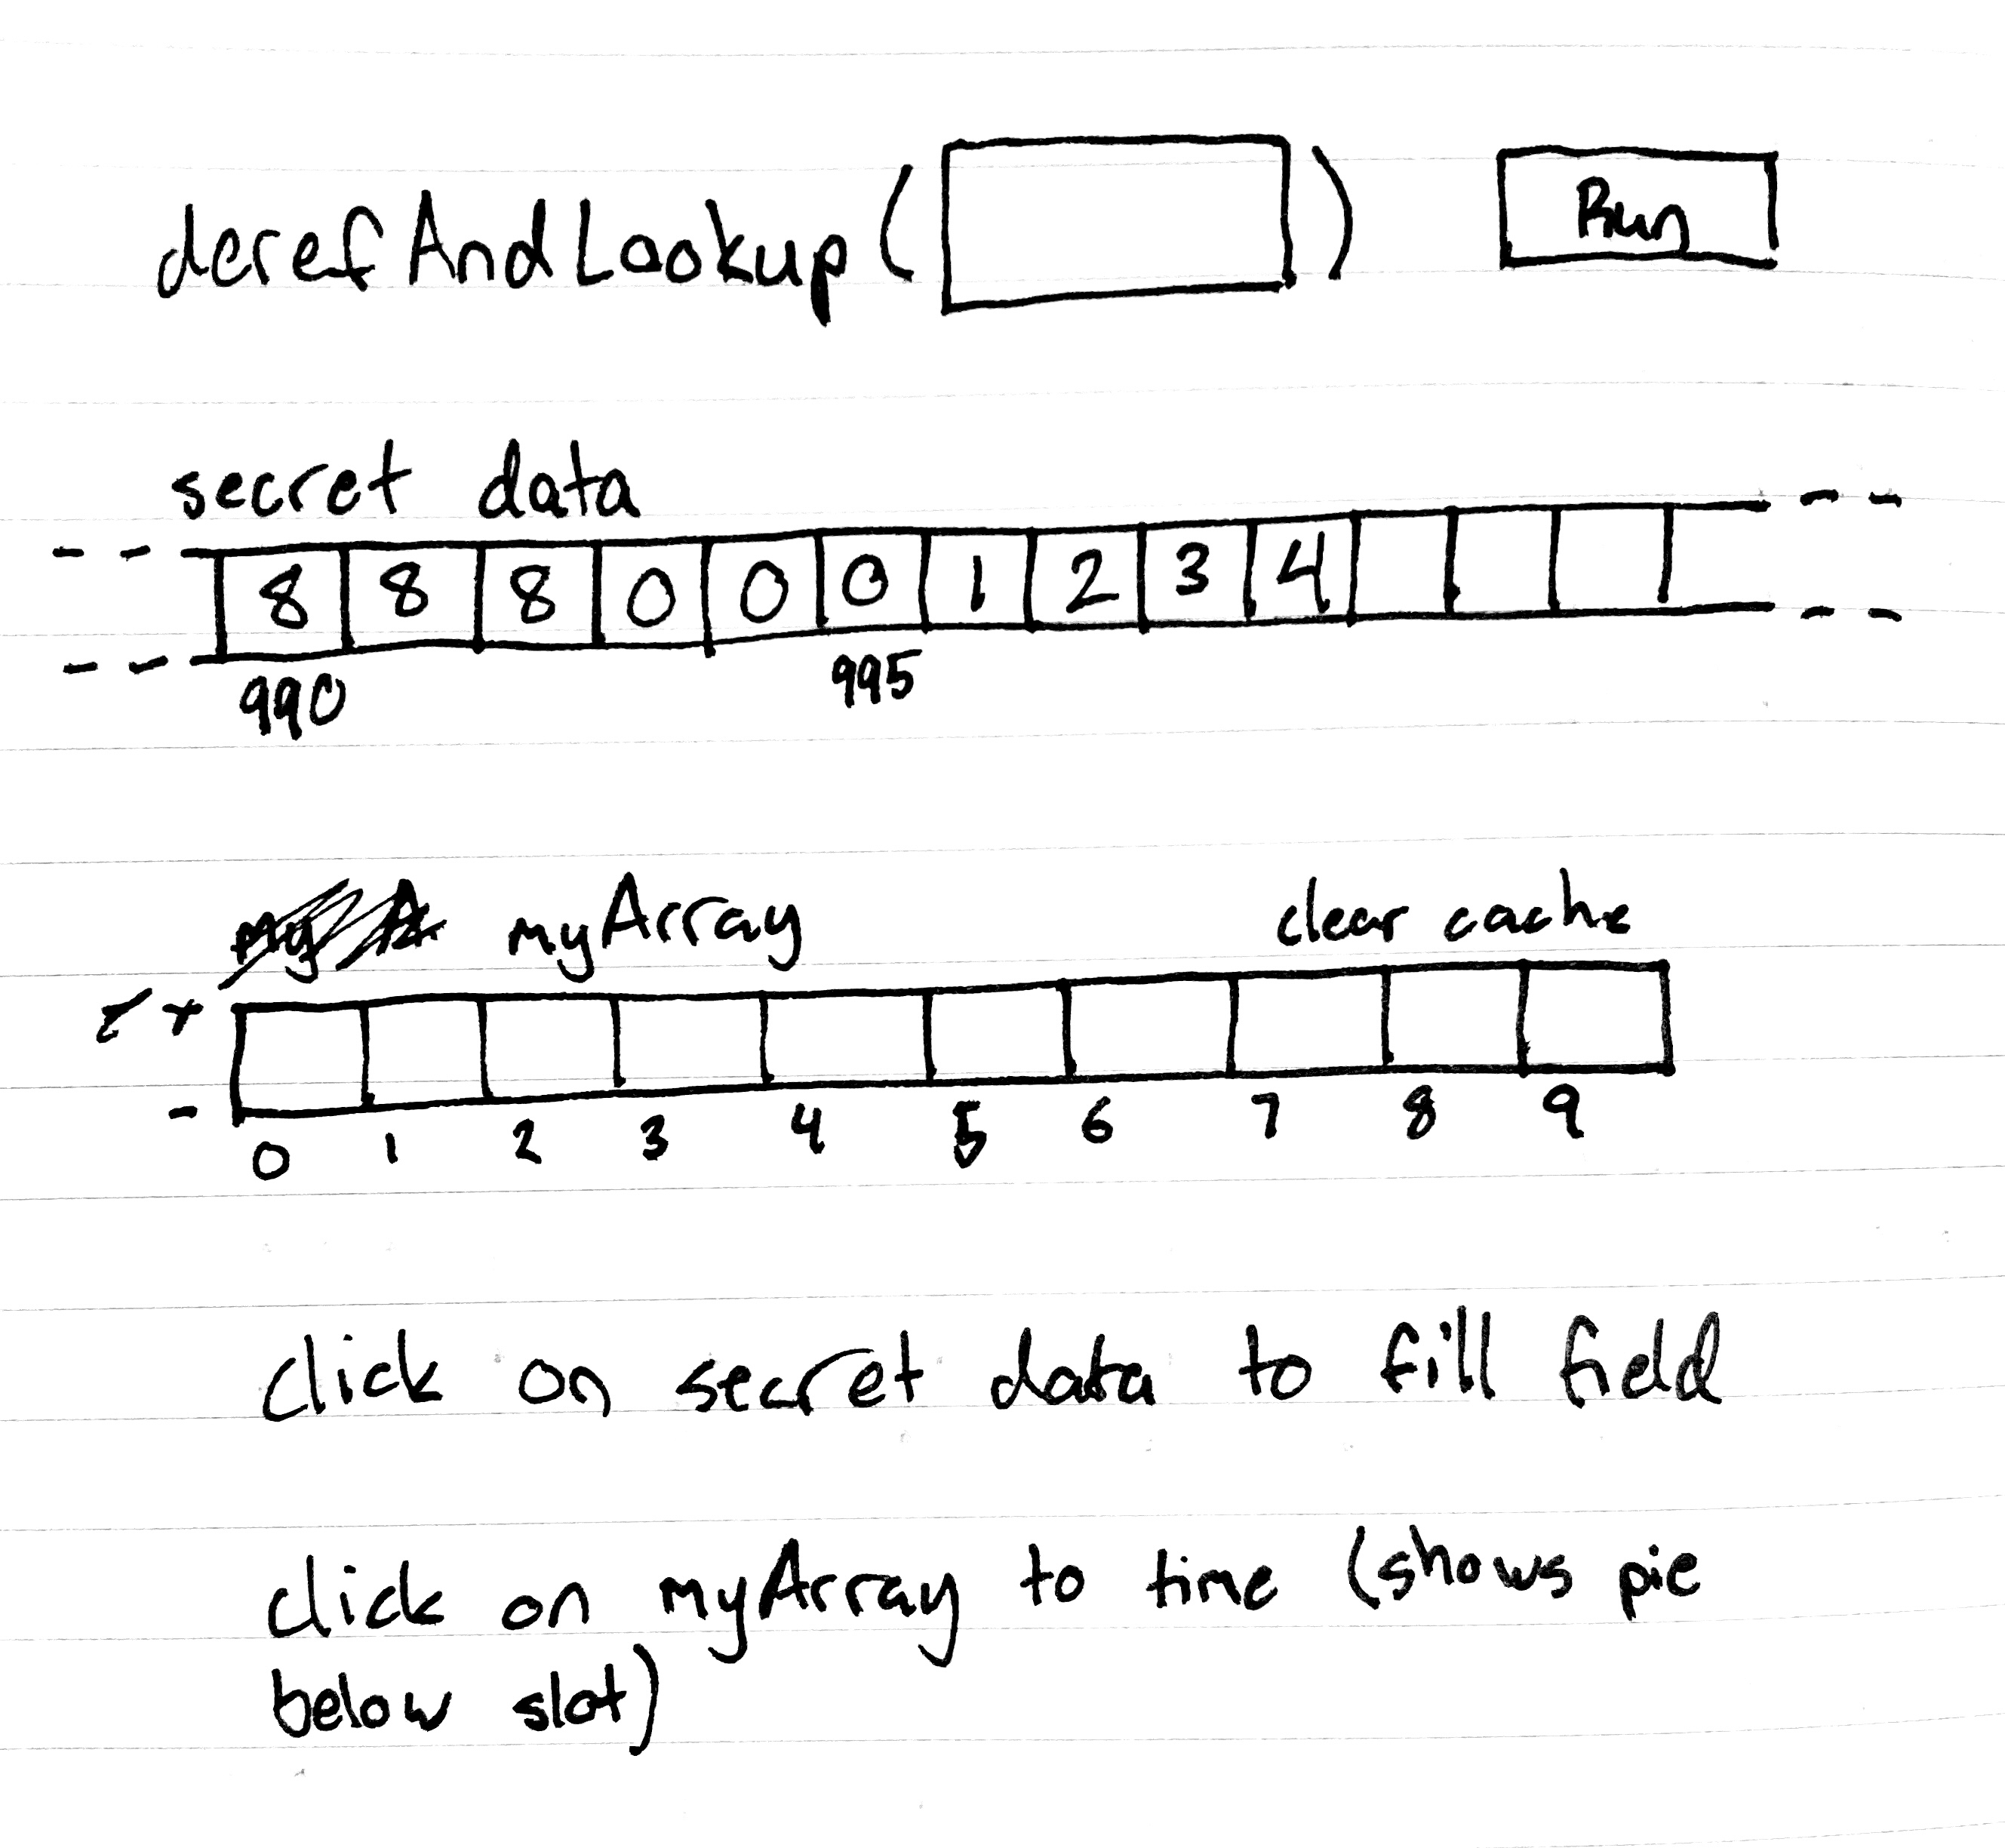 derefAndLookup ( ) Run
secret data
8 8 8 0 0 0 1 2 3 4
990 995
myArray clear cache
+
-
0 1 2 3 4 5 6 7 8 9
click on secret data to fill field
click on myArray to time (shows pie
below slot)